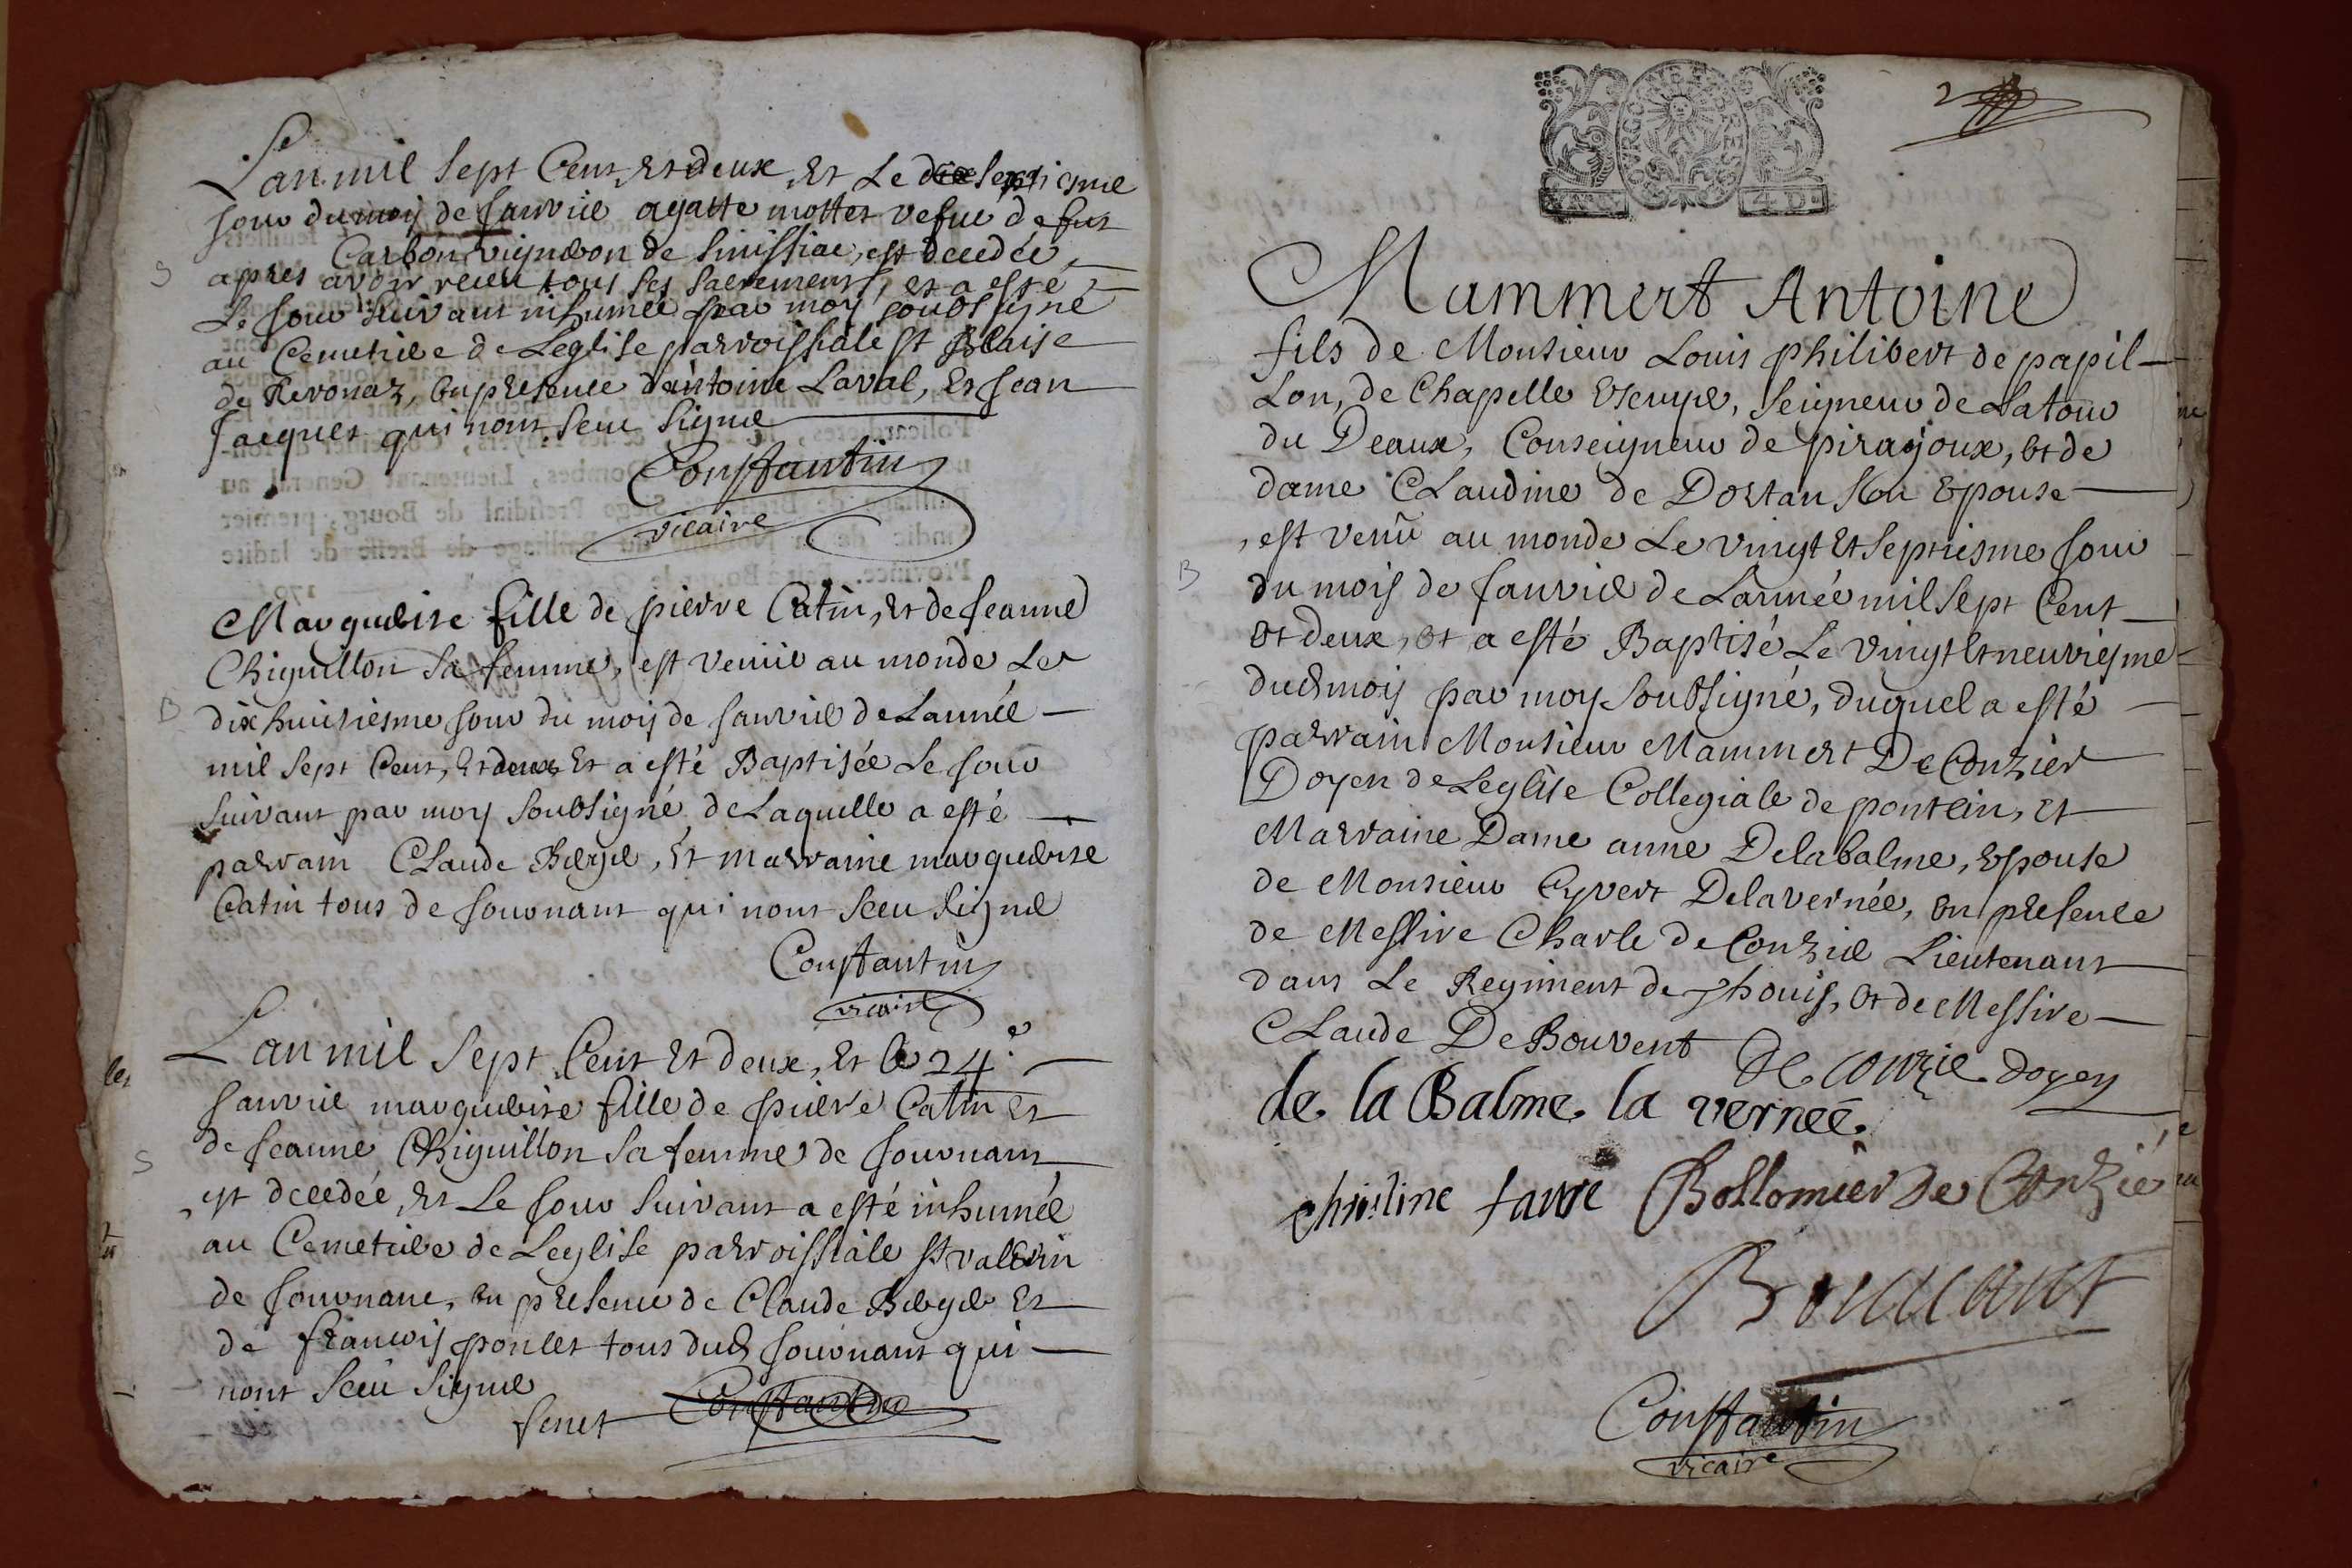 Lan mil sept Cent, et deux, et Le dixseptiesme
Jour du moy de Janvier agatte mottet vefue de fut
Carbon vigneron de Simissiac, est decedée
apres avoir receu tous ses sacrements, et a esté
Le Jour suivant inhumée par moy soubsigné
au Cemetiere de Leglise parroissiale St Blaise
de Revonaz, en presence dantoine Laval, et Jean
Jacquet qui nont sceu signer
Constantin
vicaire
Marguerite fille de pierre Catin, et de Jeanne
Chiguillon sa femme, est venüe au monde Le
dix huitiesme Jour du mois de Janvier de Lannée
mil sept Cent, et deux et a esté Baptisée Le Jour
suivant par moy soubsigné de Laquelle a esté
parrain Claude Berger, et marraine marguerite
Catin tous de Journant qui nont sceu signer
Constantin
vicaire
Lan mil sept Cent et deux, et le 24e
Janvier marguerite fille de pierre Catin et
de Jeanne Chiguillon sa femme de Journans
est decedée, et Le Jour suivant a esté inhumée
au Cemetiere de Leglise parroissiale St valerin
de Journant, en presence de Claude Berger et
de francois poncet tous dud Journant qui
nont sceu signer
Constantin
2
GEN
4 D.
Mammert Antoine
fils de Monsieur Louis philibert de papil-
Lon, de Chapelle Escuyer, seigneur de Latour
du Deaux, Conseigneur de pirajoux, et de
dame Claudine de Dortan son Epouse
est venû au monde Le vingt et septiesme Jour
du mois de Janvier de Lannée mil sept Cent
et deux, et a esté Baptisé Le vingt et neuviesme
dud mois par moy soubsigné, duquel a esté
parrain Monsieur Mammert De Conzier
Doyen de Leglise Collegiale de pontein, et
Marraine Dame anne Delabalme, Epouse
de Monsieur Cyvert Delavernée, en presence
de Messire Charle de Conzier Lieutenant
dans Le Regiment de Thouis, et de Messire
Claude De Bouvent
de conzie doyen
de la Balme la verneé
christine favre Bollomier De Conzié
Bouuant
Constantin
vicaire